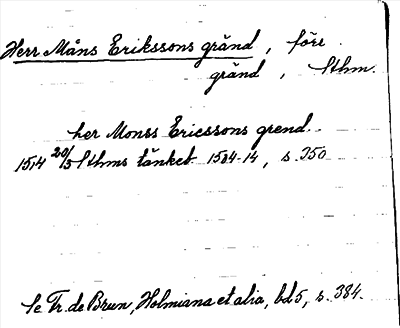 Herr Måns Erikssons gränd, förr
gränd, Sthm.
her Monss Ericssons grend.
1514 20/5 Sthms tänkeb. 1504-14, s. 350
Se Fr. de Brun, Holmiana et alia, bd 5, s. 384.